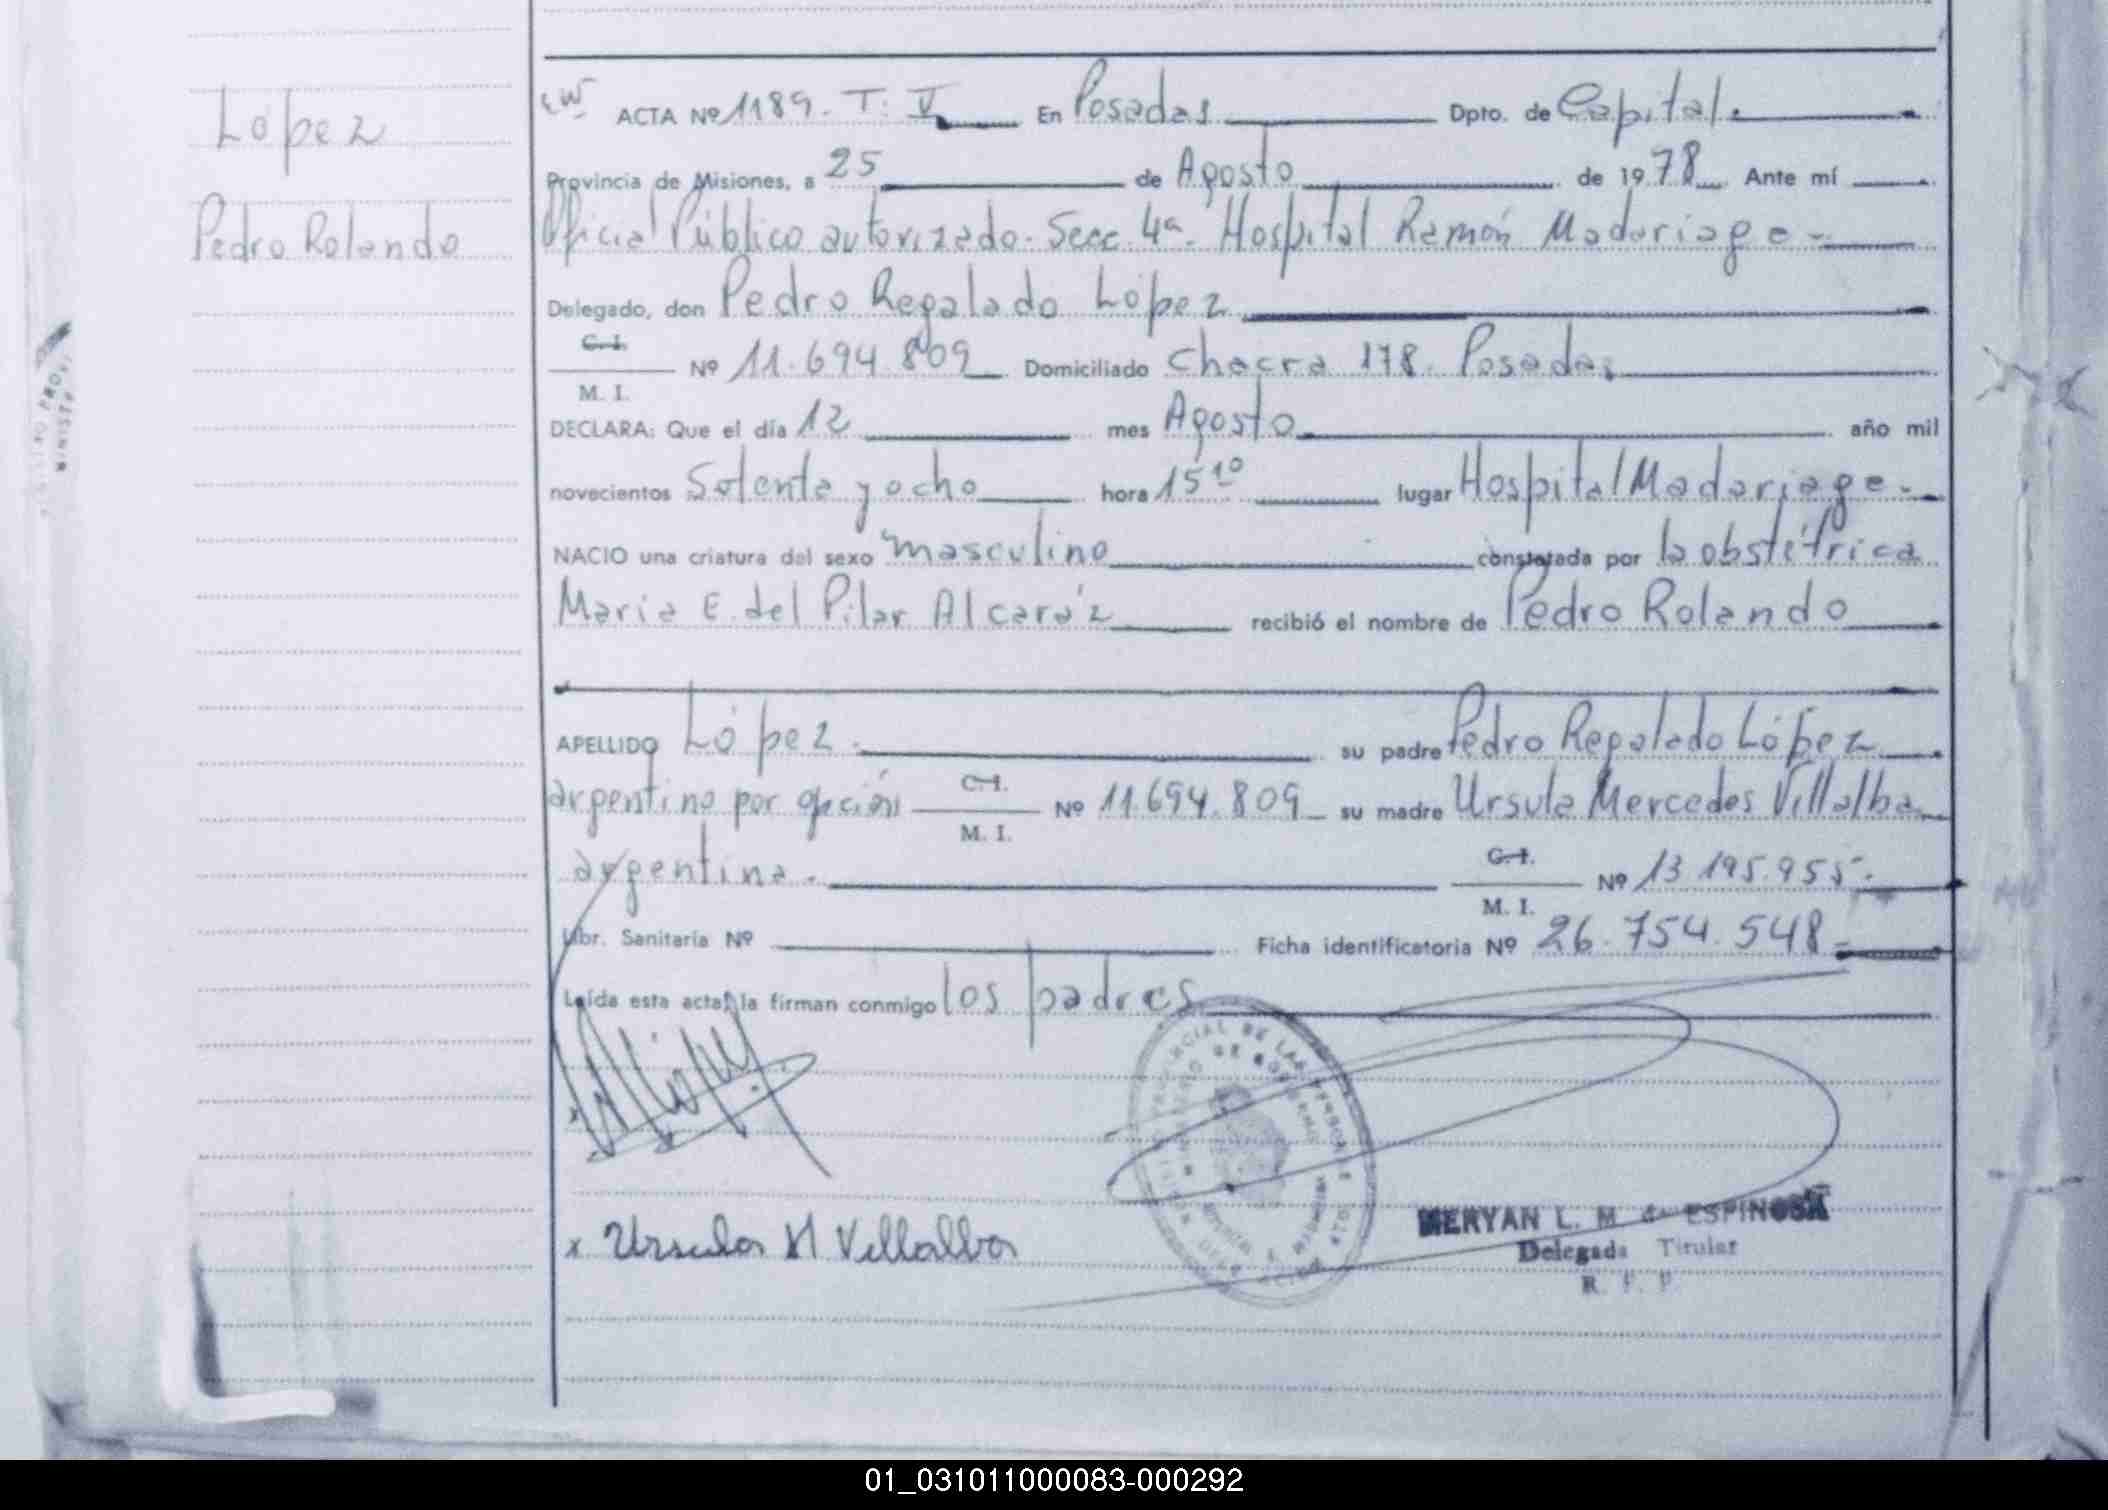 López
Pedro Rolando
ACTA Nº 1189. T: V En Posadas Dpto. de Capital.
Provincia de Misiones, a 25 de Agosto de 1978 Ante mí
Oficial Público autorizado. Secc. 4ª. Hospital Ramón Madariaga -
Delegado, don Pedro Regalado López
C. I.
Nº 11.694.809 Domiciliado Chacra 178. Posadas
M. I.
DECLARA: Que el día 12 mes Agosto año mil
novecientos Setenta y ocho hora 15 10 lugar Hospital Madariaga -
NACIO una criatura del sexo masculino constatada por la obstétrica
Maria E. del Pilar Alcaráz recibió el nombre de Pedro Rolando
APELLIDO López. su padre Pedro Regalado López
argentino por opción C. I. Nº 11.694.809 su madre Ursula Mercedes Villalba
M. I.
argentina. C. I. Nº 13.195.955.
M. I.
Libr. Sanitaria Nº Ficha identificatoria Nº 26.754.548
Leída esta acta, la firman conmigo los padres
x Ursula M Villalba
MERYAN L. M. de ESPINOSA
Delegada Titular
R. P. P.
01_031011000083-000292